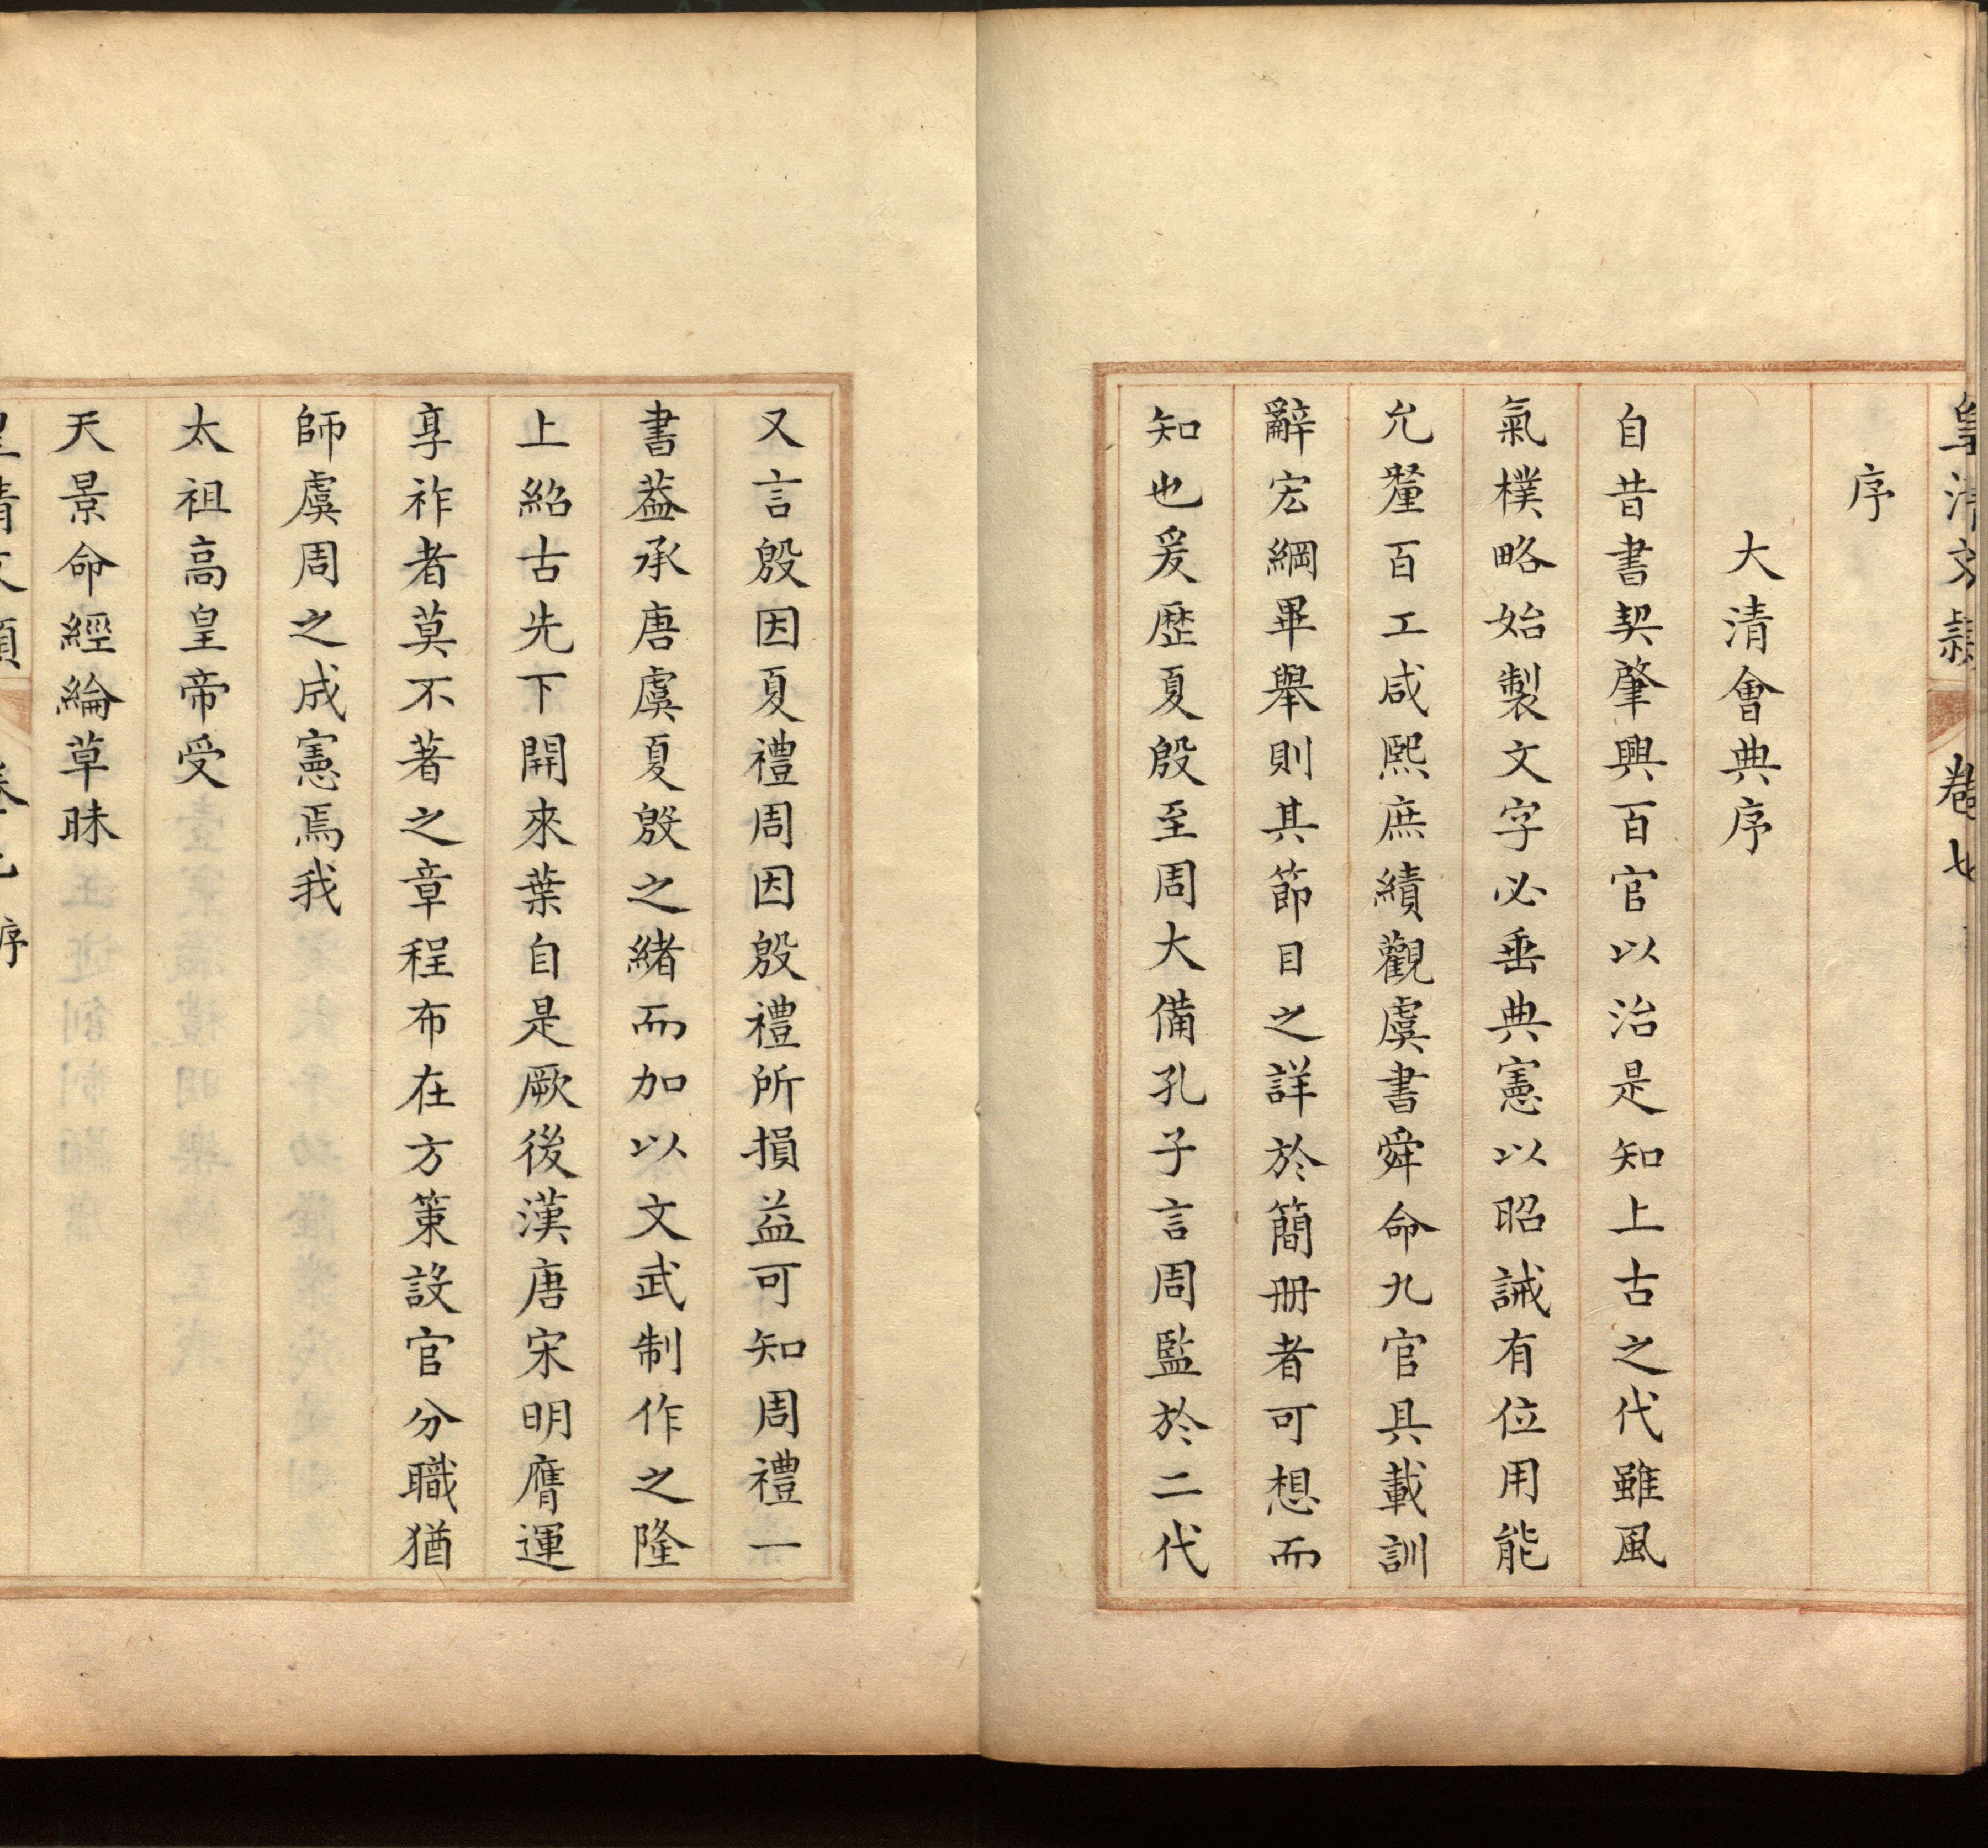 皇清文穎 卷七
序
大清會典序
自昔書契肇興百官以治是知上古之代雖風
氣樸略始製文字必垂典憲以昭誡有位用能
允釐百工咸熙庶績觀虞書舜命九官具載訓
辭宏綱畢舉則其節目之詳於簡冊者可想而
知也爰歷夏殷至周大備孔子言周監於二代
又言殷因夏禮周因殷禮所損益可知周禮一
書葢承唐虞夏殷之緒而加以文武制作之隆
上紹古先下開來葉自是厥後漢唐宋明膺運
享祚者莫不著之章程布在方策設官分職猶
師虞周之成憲焉我
太祖高皇帝受
天景命經綸草昧
皇清文穎 卷七 序